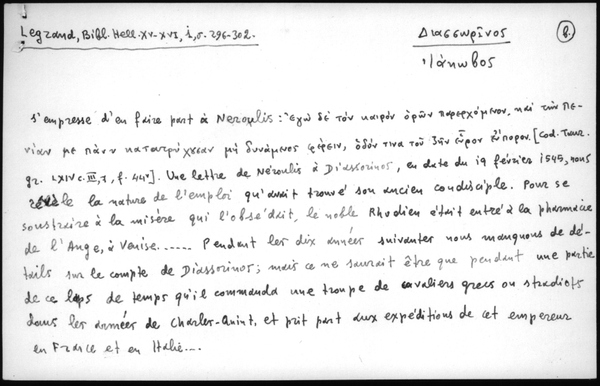 Legrand, Bibl. Hell. XV-XVI, 1, σ. 296-302.
Διασσωρῖνος
Ἰάκωβος
β.
s'empresse d'en faire part à Néroulis: Ἐγὼ δὲ τὸν καιρὸν ὁρῶν παρερχόμενον, καὶ τὴν πε-
νίαν με πάνυ κατατρύχουσαν μὴ δυνάμενος φέρειν, ὁδόν τινα τοῦ ζῆν εὗρον εὔπορον. [Cod. Taur.
gr. LXIV c. III, 7, f. 44v]. Une lettre de Néroulis à Diassorinos, en date du 19 février 1545, nous
révèle la nature de l'emploi qu'avait trouvé son ancien condisciple. Pour se
soustraire à la misère qui l'obsédait, le noble Rhodien était entré à la pharmacie
de l'Ange, à Venise...... Pendant les dix années suivantes nous manquons de dé-
tails sur le compte de Diassorinos; mais ce ne saurait être que pendant une partie
de ce laps de temps qu'il commanda une troupe de cavaliers grecs ou stradiots
dans les armées de Charles-Quint, et prit part aux expéditions de cet empereur
en France et en Italie....